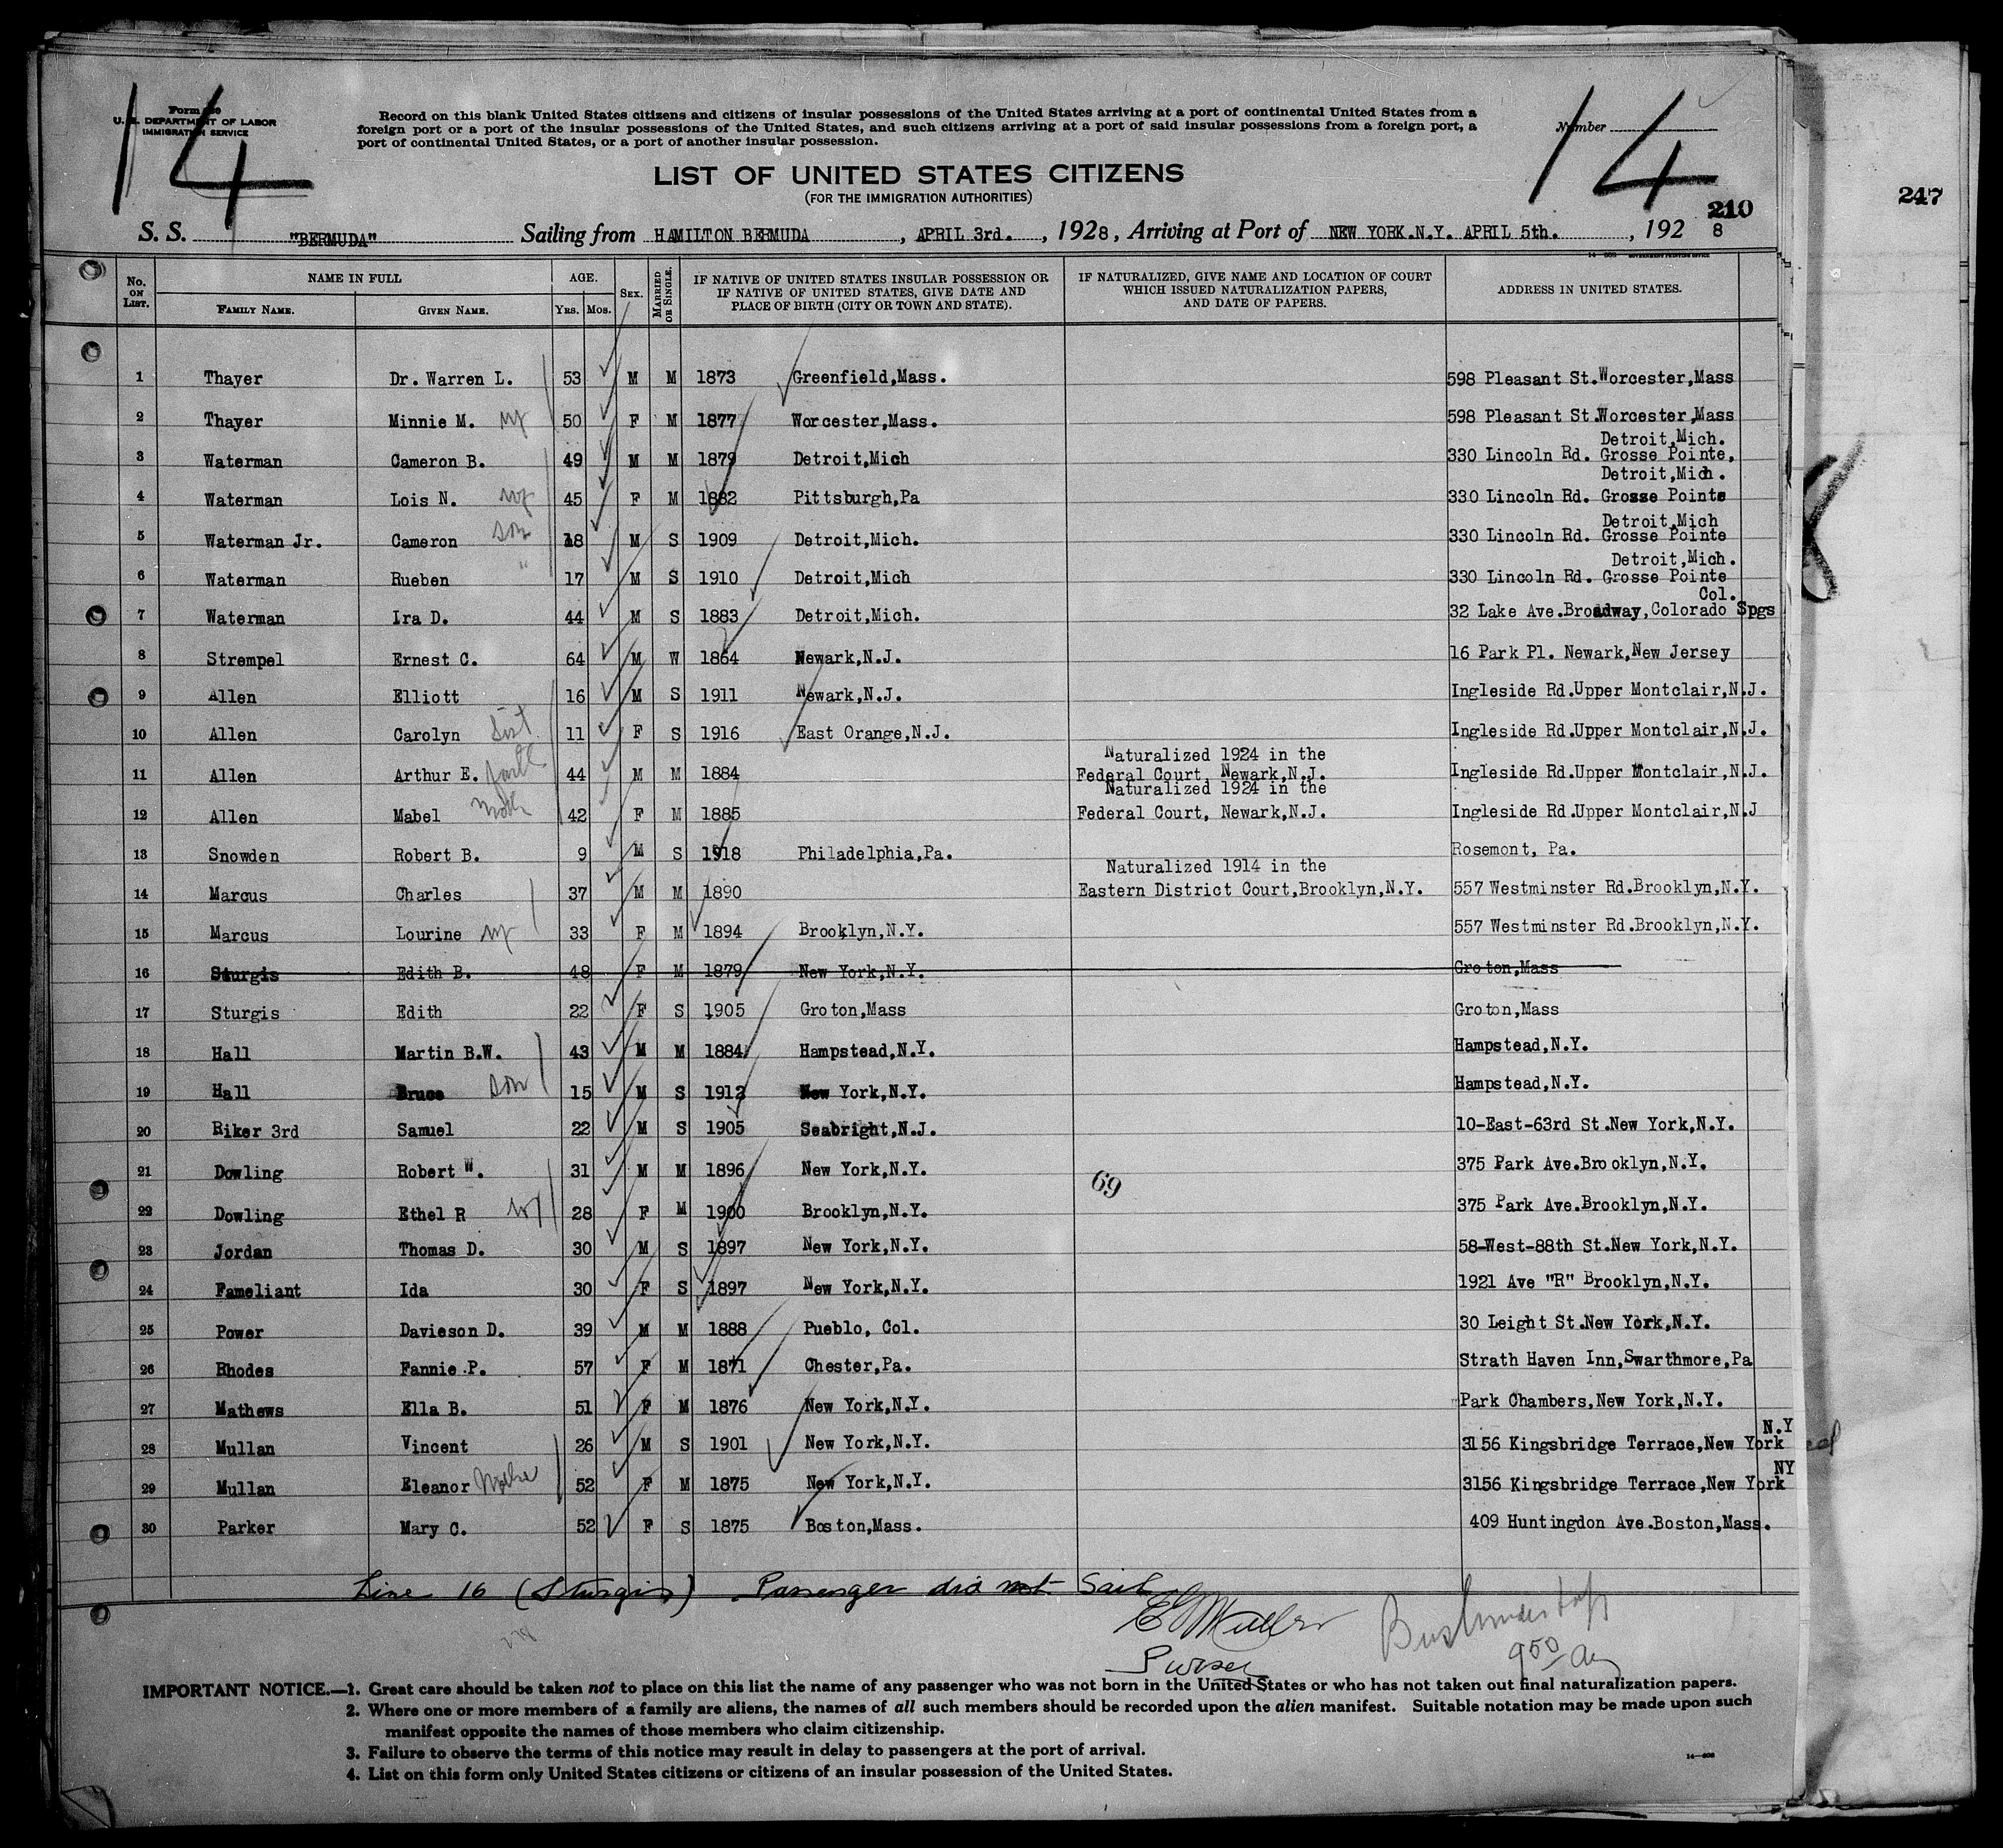 14
14
Form 630
U. S. DEPARTMENT OF LABOR
IMMIGRATION SERVICE
Record on this blank United States citizens and citizens of insular possessions of the United States arriving at a port of continental United States from a
foreign port or a port of the insular possessions of the United States, and such citizens arriving at a port of said insular possessions from a foreign port, a
port of continental United States, or a port of another insular possession.
Number
LIST OF UNITED STATES CITIZENS
(FOR THE IMMIGRATION AUTHORITIES)
247
210
S. S. "BERMUDA" Sailing from HAMILTON BERMUDA, APRIL 3rd., 1928, Arriving at Port of NEW YORK.N.Y. APRIL 5th., 1928
No. ON LIST. NAME IN FULL AGE. SEX. MARRIED OR SINGLE. IF NATIVE OF UNITED STATES INSULAR POSSESSION OR IF NATIVE OF UNITED STATES, GIVE DATE AND PLACE OF BIRTH (CITY OR TOWN AND STATE). IF NATURALIZED, GIVE NAME AND LOCATION OF COURT WHICH ISSUED NATURALIZATION PAPERS, AND DATE OF PAPERS. ADDRESS IN UNITED STATES.
FAMILY NAME. GIVEN NAME. YRS. MOS.
1 Thayer Dr. Warren L. 53 M M 1873 Greenfield,Mass. 598 Pleasant St.Worcester,Mass
2 Thayer Minnie M. wf 50 F M 1877 Worcester,Mass. 598 Pleasant St.Worcester,Mass
Detroit,Mich.
3 Waterman Cameron B. 49 M M 1879 Detroit,Mich 330 Lincoln Rd. Grosse Pointe,
Detroit,Mich.
4 Waterman Lois N. wf 45 F M 1882 Pittsburgh,Pa 330 Lincoln Rd. Grosse Pointe
Detroit,Mich
5 Waterman Jr. Cameron son 18 M S 1909 Detroit,Mich. 330 Lincoln Rd. Grosse Pointe
Detroit,Mich.
6 Waterman Rueben " 17 M S 1910 Detroit,Mich 330 Lincoln Rd. Grosse Pointe
Col.
7 Waterman Ira D. 44 M S 1883 Detroit,Mich. 32 Lake Ave.Broadway,Colorado Spgs
8 Strempel Ernest C. 64 M W 1864 Newark,N.J. 16 Park Pl. Newark,New Jersey
9 Allen Elliott 16 M S 1911 Newark,N.J. Ingleside Rd.Upper Montclair,N.J.
10 Allen Carolyn Sist 11 F S 1916 East Orange,N.J. Ingleside Rd.Upper Montclair,N.J.
Naturalized 1924 in the
11 Allen Arthur E. 44 M M 1884 Federal Court, Newark,N.J. Ingleside Rd.Upper Montclair,N.J.
Naturalized 1924 in the
12 Allen Mabel Moth 42 F M 1885 Federal Court, Newark,N.J. Ingleside Rd.Upper Montclair,N.J
13 Snowden Robert B. 9 M S 1918 Philadelphia,Pa. Rosemont, Pa.
Naturalized 1914 in the
14 Marcus Charles 37 M M 1890 Eastern District Court,Brooklyn,N.Y. 557 Westminster Rd.Brooklyn,N.Y.
15 Marcus Lourine wf 33 F M 1894 Brooklyn,N.Y. 557 Westminster Rd.Brooklyn,N.Y.
16 Sturgis Edith B. 48 F M 1879 New York,N.Y. Groton,Mass
17 Sturgis Edith 22 F S 1905 Groton,Mass Groton,Mass
18 Hall Martin B.W. 43 M M 1884 Hampstead,N.Y. Hampstead,N.Y.
19 Hall Bruce son 15 M S 1912 New York,N.Y. Hampstead,N.Y.
20 Riker 3rd Samuel 22 M S 1905 Seabright,N.J. 10-East-63rd St.New York,N.Y.
21 Dowling Robert W. 31 M M 1896 New York,N.Y. 375 Park Ave.Brooklyn,N.Y.
69
22 Dowling Ethel R wf 28 F M 1900 Brooklyn,N.Y. 375 Park Ave.Brooklyn,N.Y.
23 Jordan Thomas D. 30 M S 1897 New York,N.Y. 58-West-88th St.New York,N.Y.
24 Fameliant Ida 30 F S 1897 New York,N.Y. 1921 Ave "R" Brooklyn,N.Y.
25 Power Davieson D. 39 M M 1888 Pueblo, Col. 30 Leight St.New York,N.Y.
26 Rhodes Fannie P. 57 F M 1871 Chester,Pa. Strath Haven Inn,Swarthmore,Pa
27 Mathews Ella B. 51 F M 1876 New York,N.Y. Park Chambers,New York,N.Y.
N.Y
28 Mullan Vincent 26 M S 1901 New York,N.Y. 3156 Kingsbridge Terrace,New York
NY
29 Mullan Eleanor Mother 52 F M 1875 New York,N.Y. 3156 Kingsbridge Terrace,New York
30 Parker Mary C. 52 F S 1875 Boston,Mass. 409 Huntingdon Ave.Boston,Mass.
Line 16 (Sturgis) Passenger did not Sail
Purser
950
IMPORTANT NOTICE.—1. Great care should be taken not to place on this list the name of any passenger who was not born in the United States or who has not taken out final naturalization papers.
2. Where one or more members of a family are aliens, the names of all such members should be recorded upon the alien manifest. Suitable notation may be made upon such
manifest opposite the names of those members who claim citizenship.
3. Failure to observe the terms of this notice may result in delay to passengers at the port of arrival.
4. List on this form only United States citizens or citizens of an insular possession of the United States.